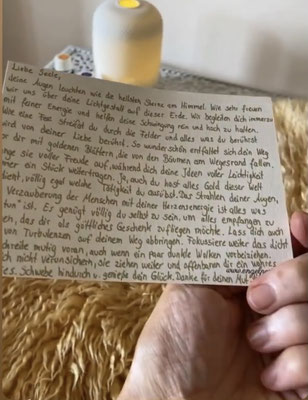 Liebe Seele,
deine Augen leuchten wie die hellsten Sterne am Himmel. Wie sehr freuen
wir uns über deine Lichtgestalt auf dieser Erde. Wir begleiten dich immerzu
mit feiner Energie und helfen deine Schwingung rein und hoch zu halten.
Wie eine Fee streifst du durch die Felder und alles was du berührst
wird von deiner Liebe berührt. So wunderschön entfaltet sich dein Weg
vor dir mit goldenen Blättern, die von den Bäumen am Wegesrand fallen.
ge sie voller Freude auf, während dich deine Ideen voller Leichtigkeit
mer ein Stück weitertragen. Ja, auch du hast alles Gold dieser Welt
dient, völlig egal welche Tätigkeit du ausübst. Das Strahlen deiner Augen,
Verzauberung der Menschen mit deiner Herzensenergie ist alles was
tun" ist. Es genügt völlig du selbst zu sein, um alles empfangen zu
en, das dir als göttliches Geschenk zufliegen möchte. Lass dich auch
von Turbulenzen auf deinem Weg abbringen. Fokussiere weiter das Licht
chreite mutig voran, auch wenn ein paar dunkle Wolken vorbeiziehen.
ch nicht verunsichern, sie ziehen weiter und offenbaren dir ein wahres
es. Schwebe hindurch u. genieße dein Glück. Danke für deinen Mut